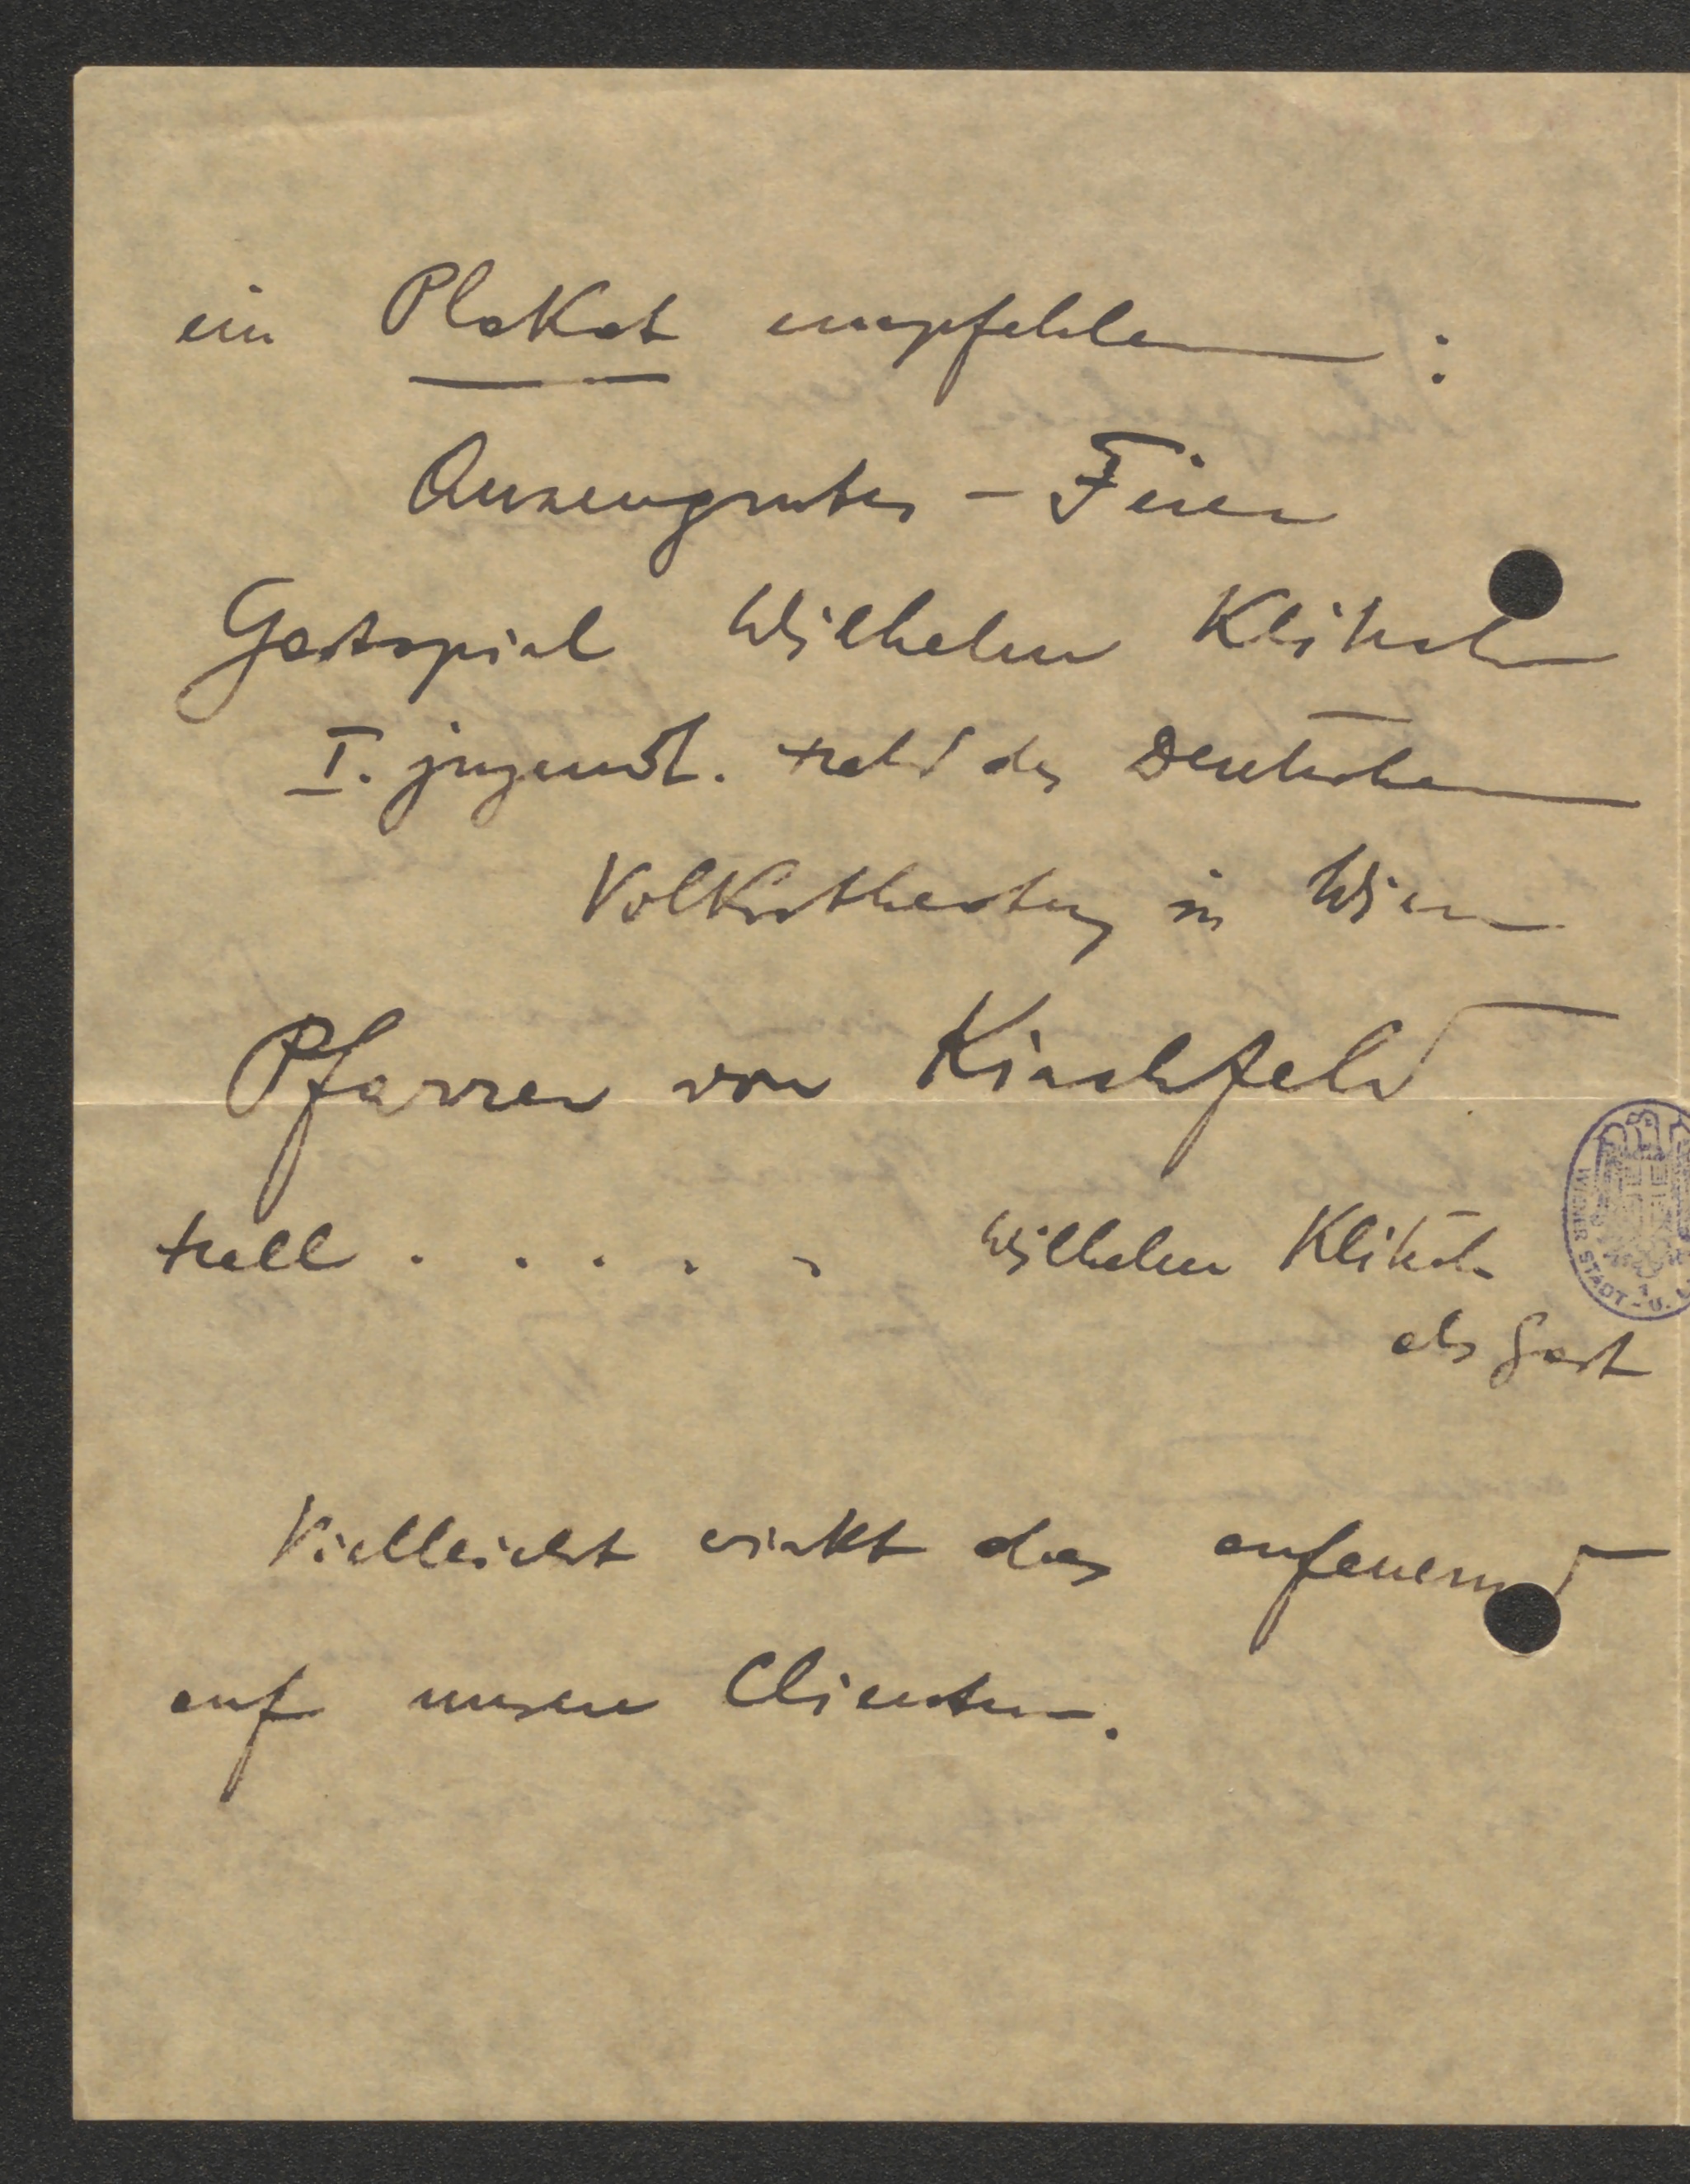 ein Plakat empfehlen :
Anzengruber – Feier
Gastspiel Wilhelm Klitsch
I. jugendl. Held des Deutschen
Volkstheaters in Wien
Pfarrer von Kirchfeld
Hell . . . . . Wilhelm Klitsch
als Gast
WIENER STADT - U.
Vielleicht wirkt das anfeuernd
auf unsere Clienten.